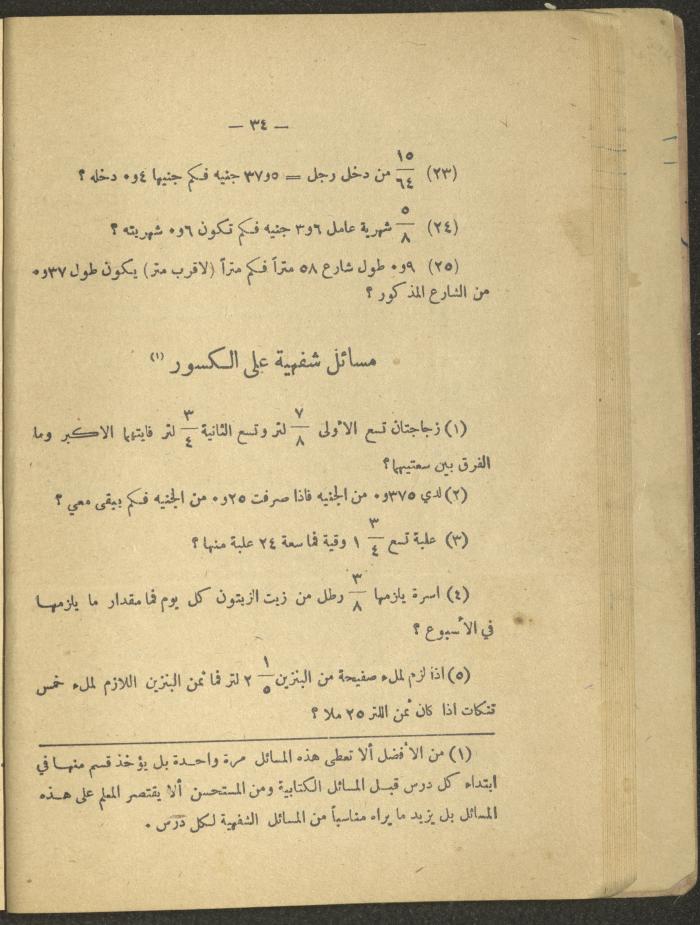 — ٣٤ —
(٢٣) ١٥/٦٤ من دخل رجل = ٣٧و٥ جنيه فكم جنيها ٤و٠ دخله ؟
(٢٤) ٥/٨ شهرية عامل ٣و٦ جنيه فكم تكون ٦و٠ شهريته ؟
(٢٥) ٩و٠ طول شارع ٥٨ متراً فكم متراً (لاقرب متر) يكون طول ٣٧و٠
من الشارع المذكور ؟
مسائل شفهية على الكسور (١)
(١) زجاجتان تسع الأولى ٧/٨ لتر وتسع الثانية ٣/٤ لتر فايتهما الاكبر وما
الفرق بين سعتيهما؟
(٢) لدي ٣٧٥و٠ من الجنيه فاذا صرفت ٢٥و٠ من الجنيه فكم يبقى معي ؟
(٣) علبة تسع ٣/٤ ١ وقية فما سعة ٢٤ علبة منها ؟
(٤) اسرة يلزمها ٣/٨ رطل من زيت الزيتون كل يوم فما مقدار ما يلزمها
في الأسبوع ؟
(٥) اذا لزم لملء صفيحة من البنزين ١/٥ ٢ لتر فما ثمن البنزين اللازم لملء خمس
تنكات اذا كان ثمن اللتر ٢٥ ملا ؟
(١) من الأفضل ألا تعطى هذه المسائل مرة واحدة بل يؤخذ قسم منها في
ابتداء كل درس قبل المسائل الكتابية ومن المستحسن ألا يقتصر المعلم على هذه
المسائل بل يزيد ما يراه مناسباً من المسائل الشفهية لكل درس .